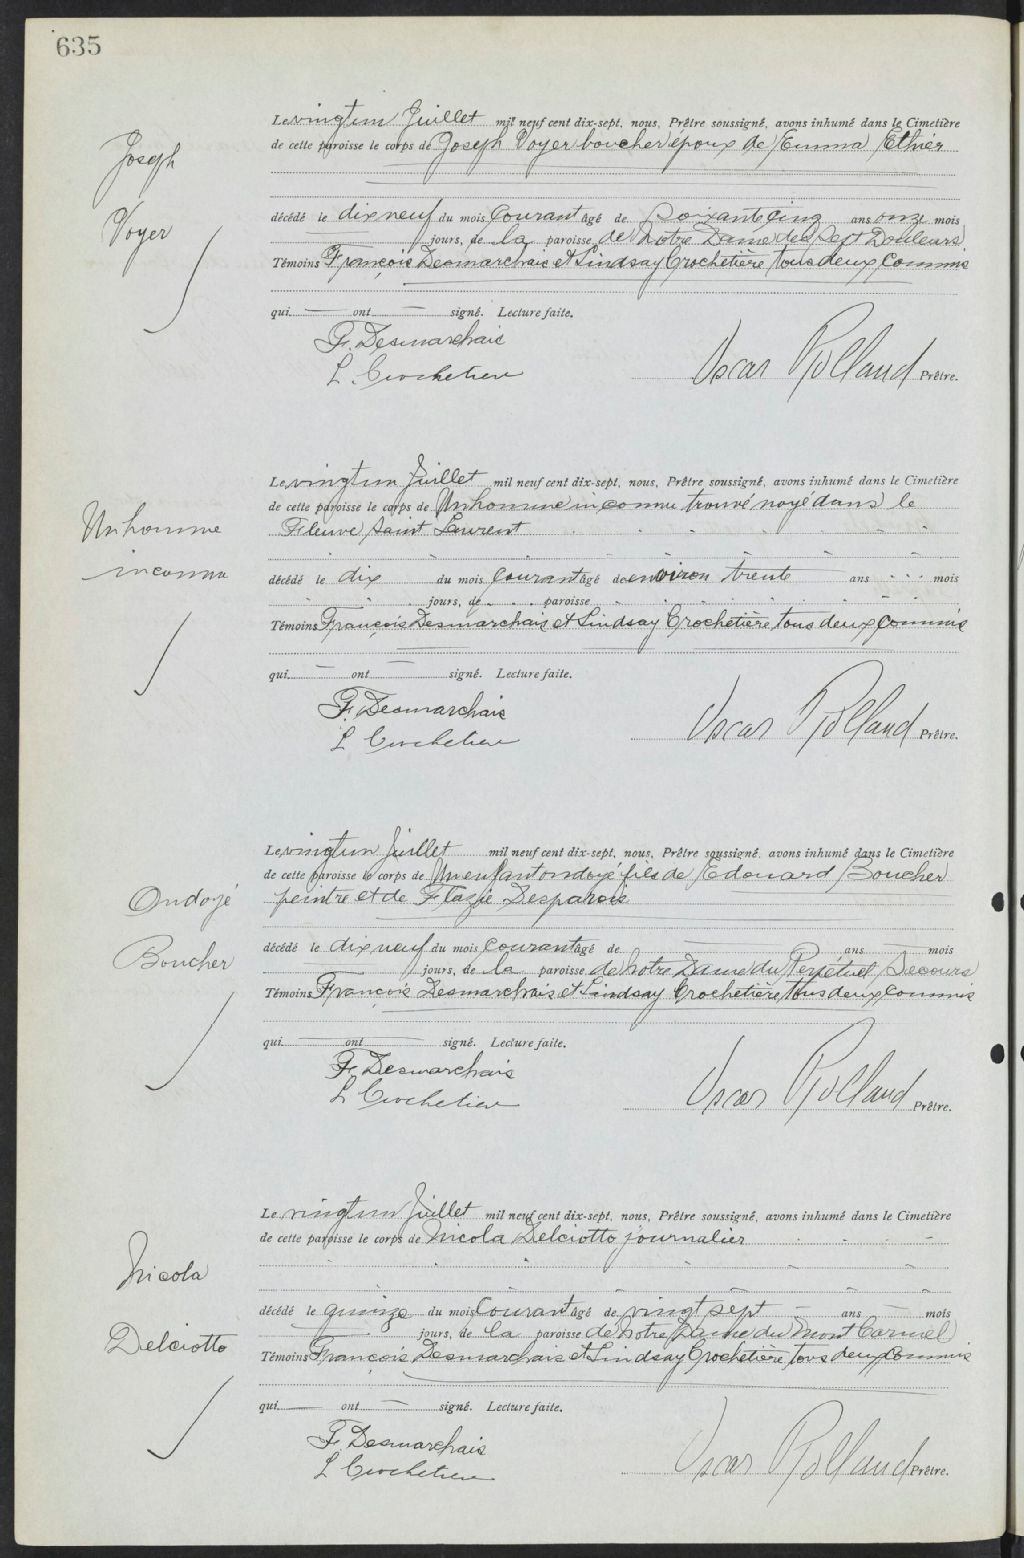 635
Joseph
Voyer
Le vingtun Juillet mil neuf cent dix-sept, nous, Prêtre soussigné, avons inhumé dans le Cimetière
de cette paroisse le corps de Joseph Voyer boucher époux de Emma Ethier
décédé le dixneuf du mois Courant âgé de Soixantecinq ans onze mois
jours, de la paroisse de Notre Dame des Sept Douleurs
Témoins François Desmarchais et Lindsay Crochetière tous deux Commis
qui — ont — signé. Lecture faite.
F. Desmarchais
L. Crochetiere
Oscar Rolland Prêtre.
Un homme
inconnu
Le vingtun Juillet mil neuf cent dix-sept, nous, Prêtre soussigné, avons inhumé dans le Cimetière
de cette paroisse le corps de Un homme inconnu trouvé noyé dans le
Fleuve Saint Laurent
décédé le dix du mois Courant âgé de environ trente ans mois
jours, de paroisse
Témoins François Desmarchais et Lindsay Crochetière tous deux Commis
qui — ont — signé. Lecture faite.
F. Desmarchais
L Crochetiere
Oscar Rolland Prêtre.
Ondoyé
Boucher
Le vingtun Juillet mil neuf cent dix-sept, nous, Prêtre soussigné, avons inhumé dans le Cimetière
de cette paroisse le corps de Un enfant ondoyé fils de Edouard Boucher
peintre et de Flazie Desparois
décédé le dixneuf du mois Courant âgé de — ans — mois
jours, de la paroisse de Notre Dame du Perpétuel Secours
Témoins François Desmarchais et Lindsay Crochetière tous deux Commis
qui — ont — signé. Lecture faite.
F. Desmarchais
L Crochetiere
Oscar Rolland Prêtre.
Nicola
Delciotto
Le vingtun Juillet mil neuf cent dix-sept, nous, Prêtre soussigné, avons inhumé dans le Cimetière
de cette paroisse le corps de Nicola Delciotto journalier
décédé le quinze du mois Courant âgé de vingt sept — ans — mois
jours, de la paroisse de Notre Dame du Mont Carmel
Témoins François Desmarchais et Lindsay Crochetière tous deux Commis
qui — ont — signé. Lecture faite.
F. Desmarchais
L Crochetiere
Oscar Rolland Prêtre.